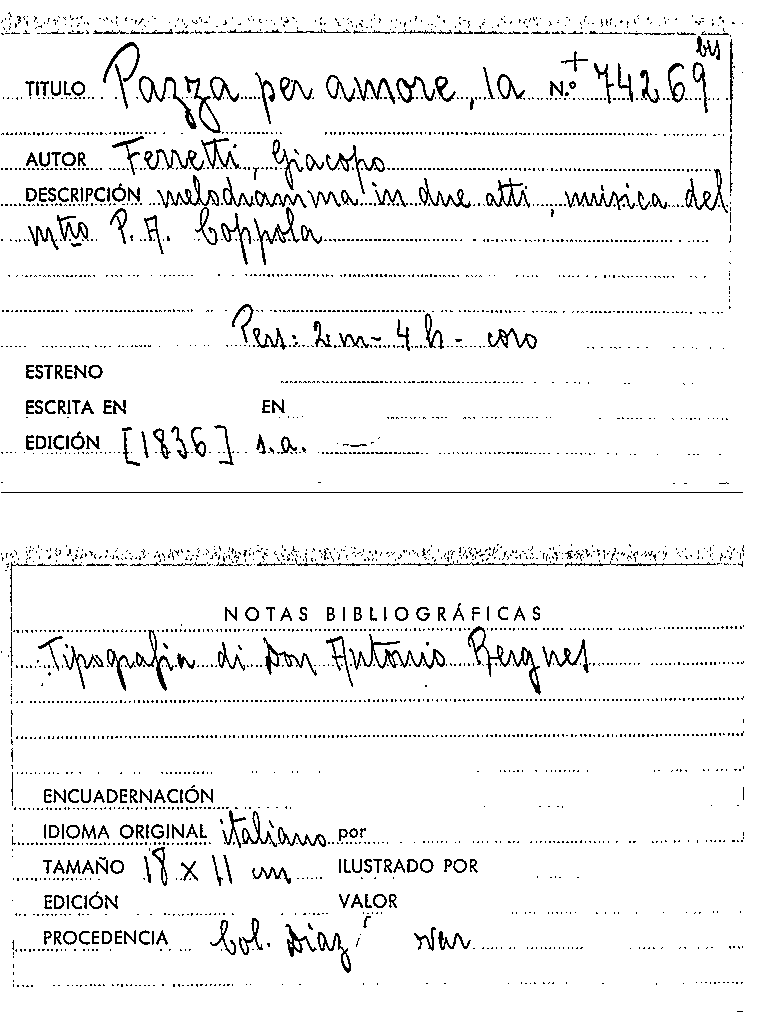 bis
TITULO Pazza per amore, la N.º + 74269
AUTOR Ferretti, Giacopo
DESCRIPCIÓN melodramma in due atti, musica del
mtro P. A. Coppola
Pers: 2 m - 4 h - coro
ESTRENO
ESCRITA EN EN
EDICIÓN [1836] s.a. —
NOTAS BIBLIOGRÁFICAS
Tipografia di Don Antonio Bergnes
ENCUADERNACIÓN
IDIOMA ORIGINAL italiano por
TAMAÑO 18 x 11 cm ILUSTRADO POR
EDICIÓN VALOR
PROCEDENCIA Col. Diaz